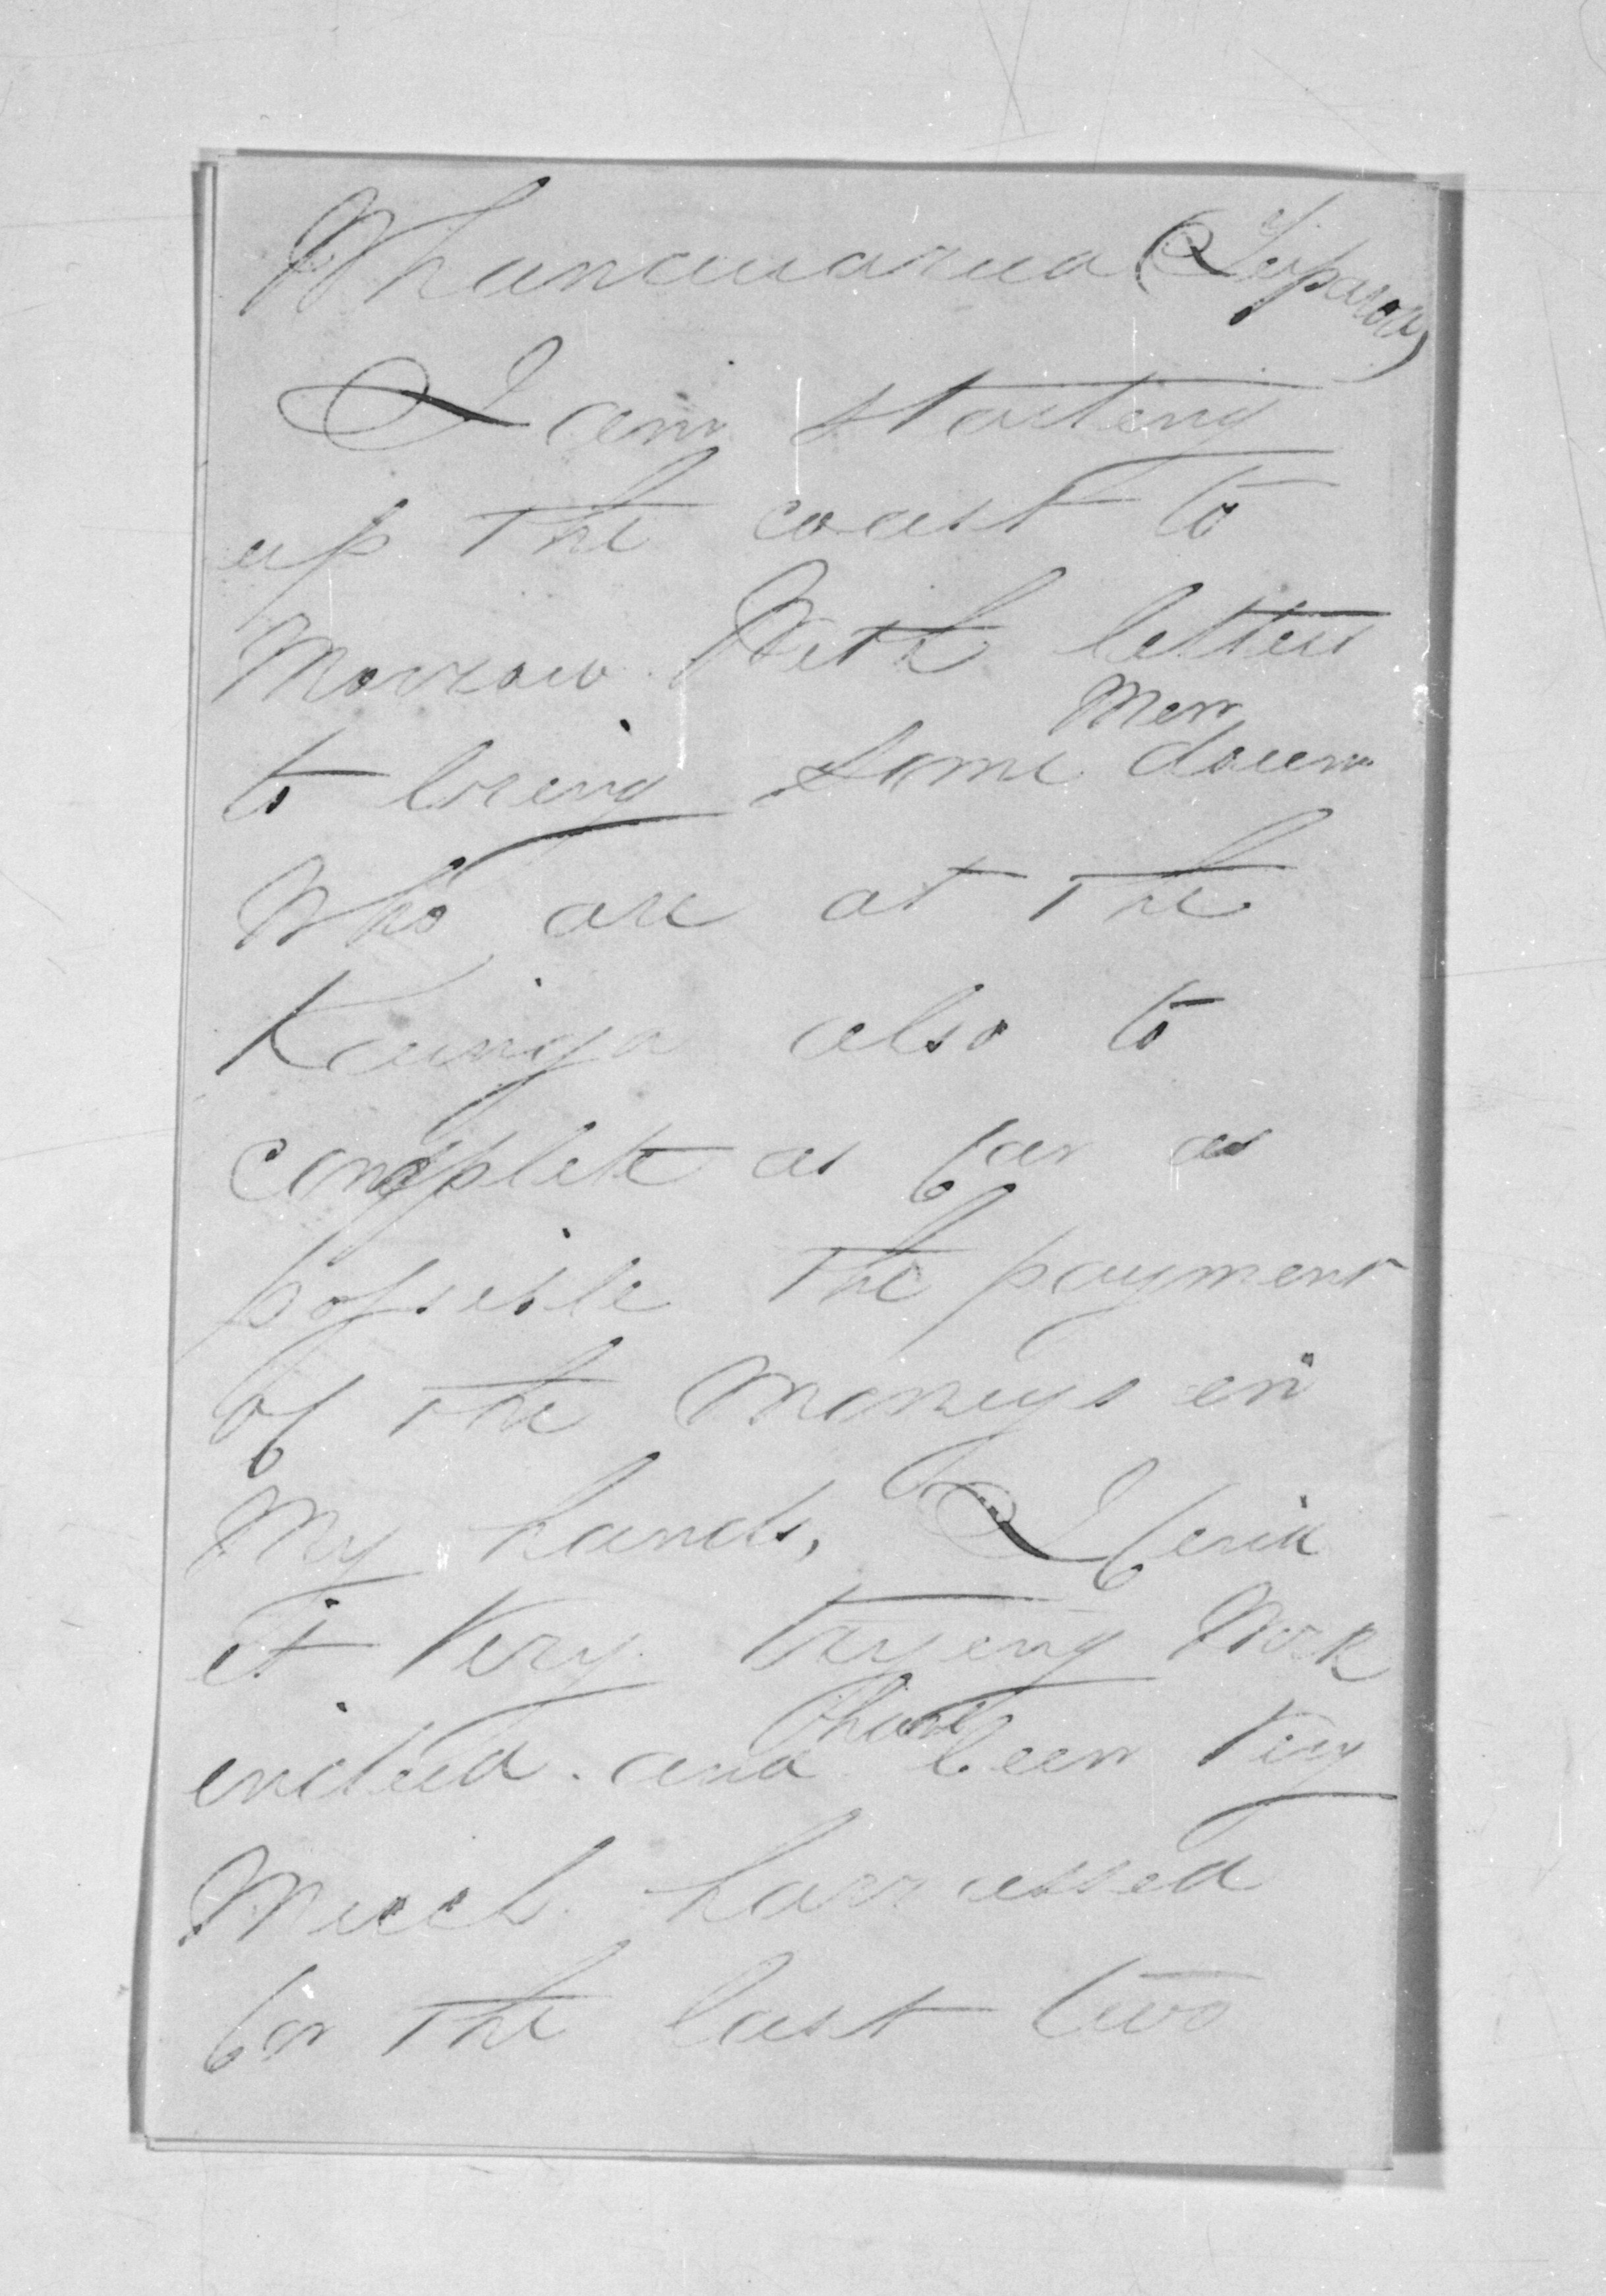 Whunauarua (
I am starting
up the coast to
Morrow With letters
to bring some Men down
Who are at the
Kainga also to
complete as far as
possible the payment
of the Moneys in
My hands, I find
it Very trying Work
indeed. and have been Very
Much harrassed
for the last two